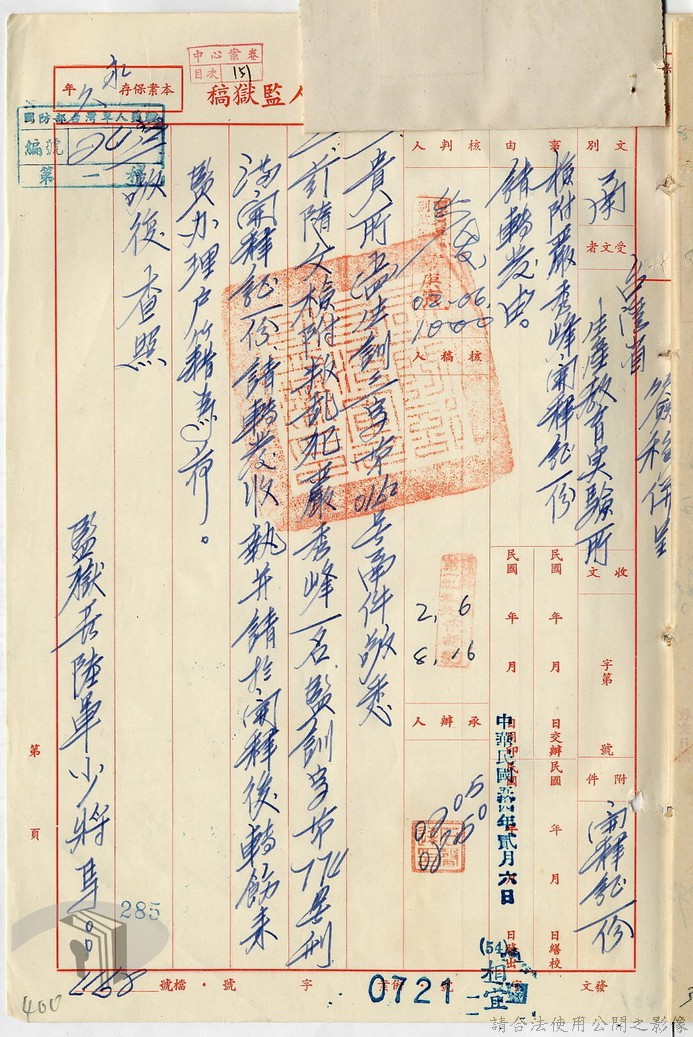 中心案卷
目次 151
本案保存 永久 年
人監獄稿
國防部台灣軍人監獄
編號
第一
文別 函
受文者
台灣省
生產教育實驗所
事由
檢附嚴秀峰開釋証一份
請轉發由。
核判人
核稿人
承辦人
02-06
1000
2.6
8.16
收文 字第 號
附件 開釋証一份
民國 年 月 日交辦
民國 年 月 日繕校
民國 年 月
中華民國五十四年貳月六日
(54)相宜
0721
發文
一、貴所 訓三字第0162号函件敬悉
二、玆隨文檢附叛乱犯嚴秀峰一名監訓字第774号刑
滿開釋証一份,請轉發收執并請於開釋後轉飭来
監办理户籍為荷。
三、敬復查照
監獄長陸軍少將
285
第 頁
檔號
字 號
268
400
請合法使用公開之影像